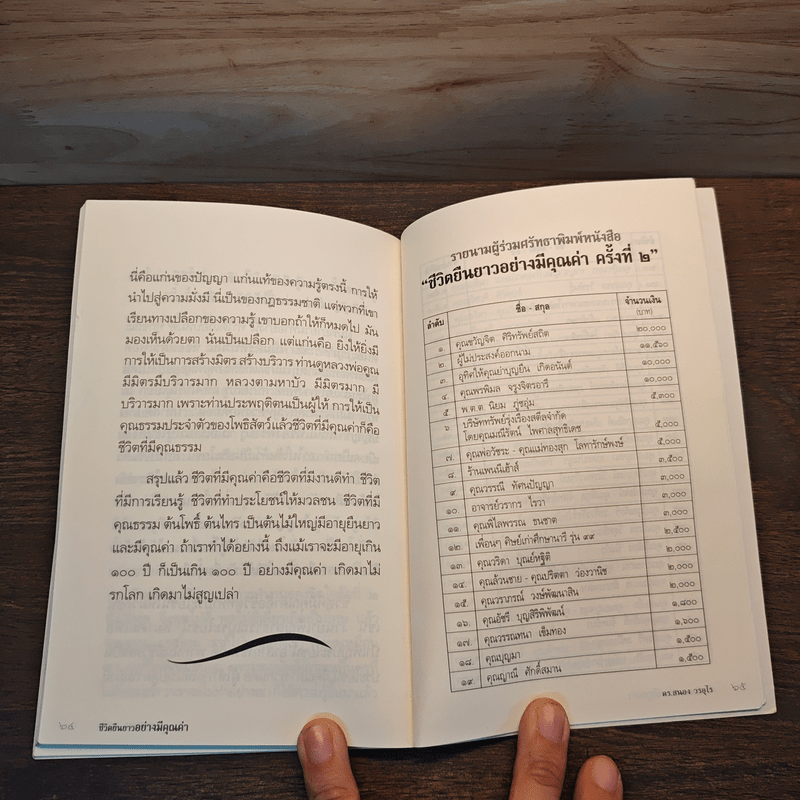 นี่คือแก่นของปัญญา แก่นแท้ของความรู้ตรงนี้ การให้
นำไปสู่ความมั่งมี นี่เป็นของกฎธรรมชาติ แต่พวกที่เขา
เรียนทางเปลือกของความรู้ เขาบอกถ้าให้ก็หมดไป มัน
มองเห็นด้วยตา นั่นเป็นเปลือก แต่แก่นคือ ยิ่งให้ยิ่งมี
การให้เป็นการสร้างมิตร สร้างบริวาร ท่านดูหลวงพ่อคูณ
มีมิตรมีบริวารมาก หลวงตามหาบัว มีมิตรมาก มี
บริวารมาก เพราะท่านประพฤติตนเป็นผู้ให้ การให้เป็น
คุณธรรมประจำตัวของโพธิสัตว์แล้วชีวิตที่มีคุณค่าก็คือ
ชีวิตที่มีคุณธรรม
สรุปแล้ว ชีวิตที่มีคุณค่าคือชีวิตที่มีงานดีทำ ชีวิต
ที่มีการเรียนรู้ ชีวิตที่ทำประโยชน์ให้มวลชน ชีวิตที่มี
คุณธรรม ต้นโพธิ์ ต้นไทร เป็นต้นไม้ใหญ่มีอายุยืนยาว
และมีคุณค่า ถ้าเราทำได้อย่างนี้ ถึงแม้เราจะมีอายุเกิน
๑๐๐ ปี ก็เป็นเกิน ๑๐๐ ปี อย่างมีคุณค่า เกิดมาไม่
รกโลก เกิดมาไม่สูญเปล่า
๖๔ ชีวิตยืนยาวอย่างมีคุณค่า
รายนามผู้ร่วมศรัทธาพิมพ์หนังสือ
“ชีวิตยืนยาวอย่างมีคุณค่า ครั้งที่ ๒”
ลำดับ ชื่อ - สกุล จำนวนเงิน
(บาท)
๑. คุณขวัญจิต ศิริทรัพย์สถิต ๒๐,๐๐๐
๒. ผู้ไม่ประสงค์ออกนาม ๑๑,๕๖๐
๓. อุทิศให้คุณย่าบุญยืน เกิดอนันต์ ๑๐,๐๐๐
๔. คุณพรพิมล จรูงจิตรอารี ๑๐,๐๐๐
๕. พ.ต.ต. นิยม ภู่ชอุ่ม ๕,๓๐๐
๖. บริษัททรัพย์รุ่งเรืองสตีลจำกัด
โดยคุณมณีรัตน์ ไพศาลสุทธิเดช ๕,๐๐๐
๗. คุณพ่อวัชระ - คุณแม่ทองสุก โลหารักษ์พงษ์ ๕,๐๐๐
๘. ร้านเพนนีเฮ้าส์ ๓,๕๐๐
๙. คุณวรรณี ทัศนปัญญา ๓,๐๐๐
๑๐. อาจารย์วรากร ไรวา ๓,๐๐๐
๑๑. คุณพิไลพรรณ ธนชาต ๓,๐๐๐
๑๒. เพื่อนๆ ศิษย์เก่าศึกษานารี รุ่น ๙๙ ๒,๕๐๐
๑๓. คุณวริดา บุณย์หฐิติ ๒,๐๐๐
๑๔. คุณล้วนชาย - คุณปริตตา ว่องวานิช ๒,๐๐๐
๑๕. คุณวราภรณ์ วงษ์พัฒนาสิน ๒,๐๐๐
๑๖. คุณอัชรี บุญสิริพิพัฒน์ ๑,๘๐๐
๑๗. คุณวรรณทนา เข็มทอง ๑,๖๐๐
๑๘. คุณบุญมา ๑,๕๐๐
๑๙. คุณญาณี ศักดิ์สมาน ๑,๕๐๐
ดร.สนอง วรอุไร ๖๕